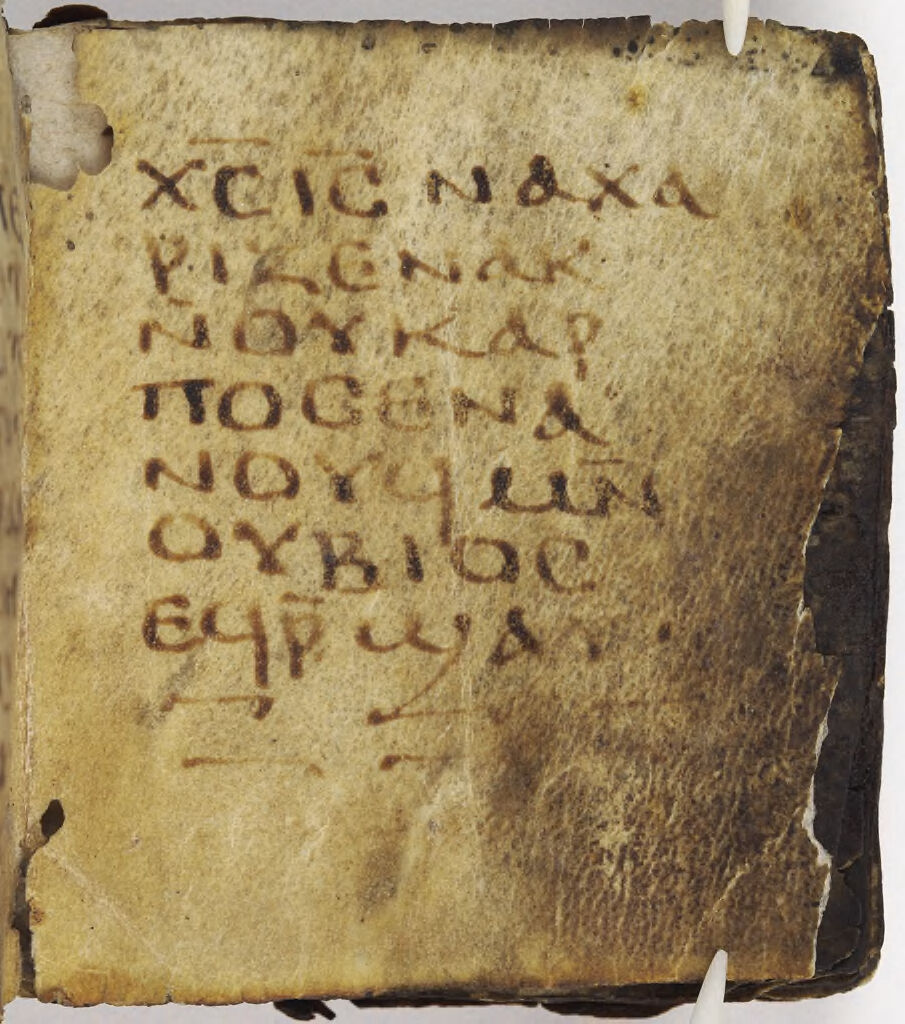 ⲭ̅ⲥ̅ⲓ̅ⲥ̅ⲛⲁⲭⲁ
ⲣⲓⲍⲉⲛⲁⲕ
ⲛ̄ⲟⲩⲕⲁⲣ
ⲡⲟⲥⲉⲛⲁ
ⲛⲟⲩϥⲙⲛ̄
ⲟⲩⲃⲓⲟⲥ
ⲉϥⲣ̄ϣⲁ